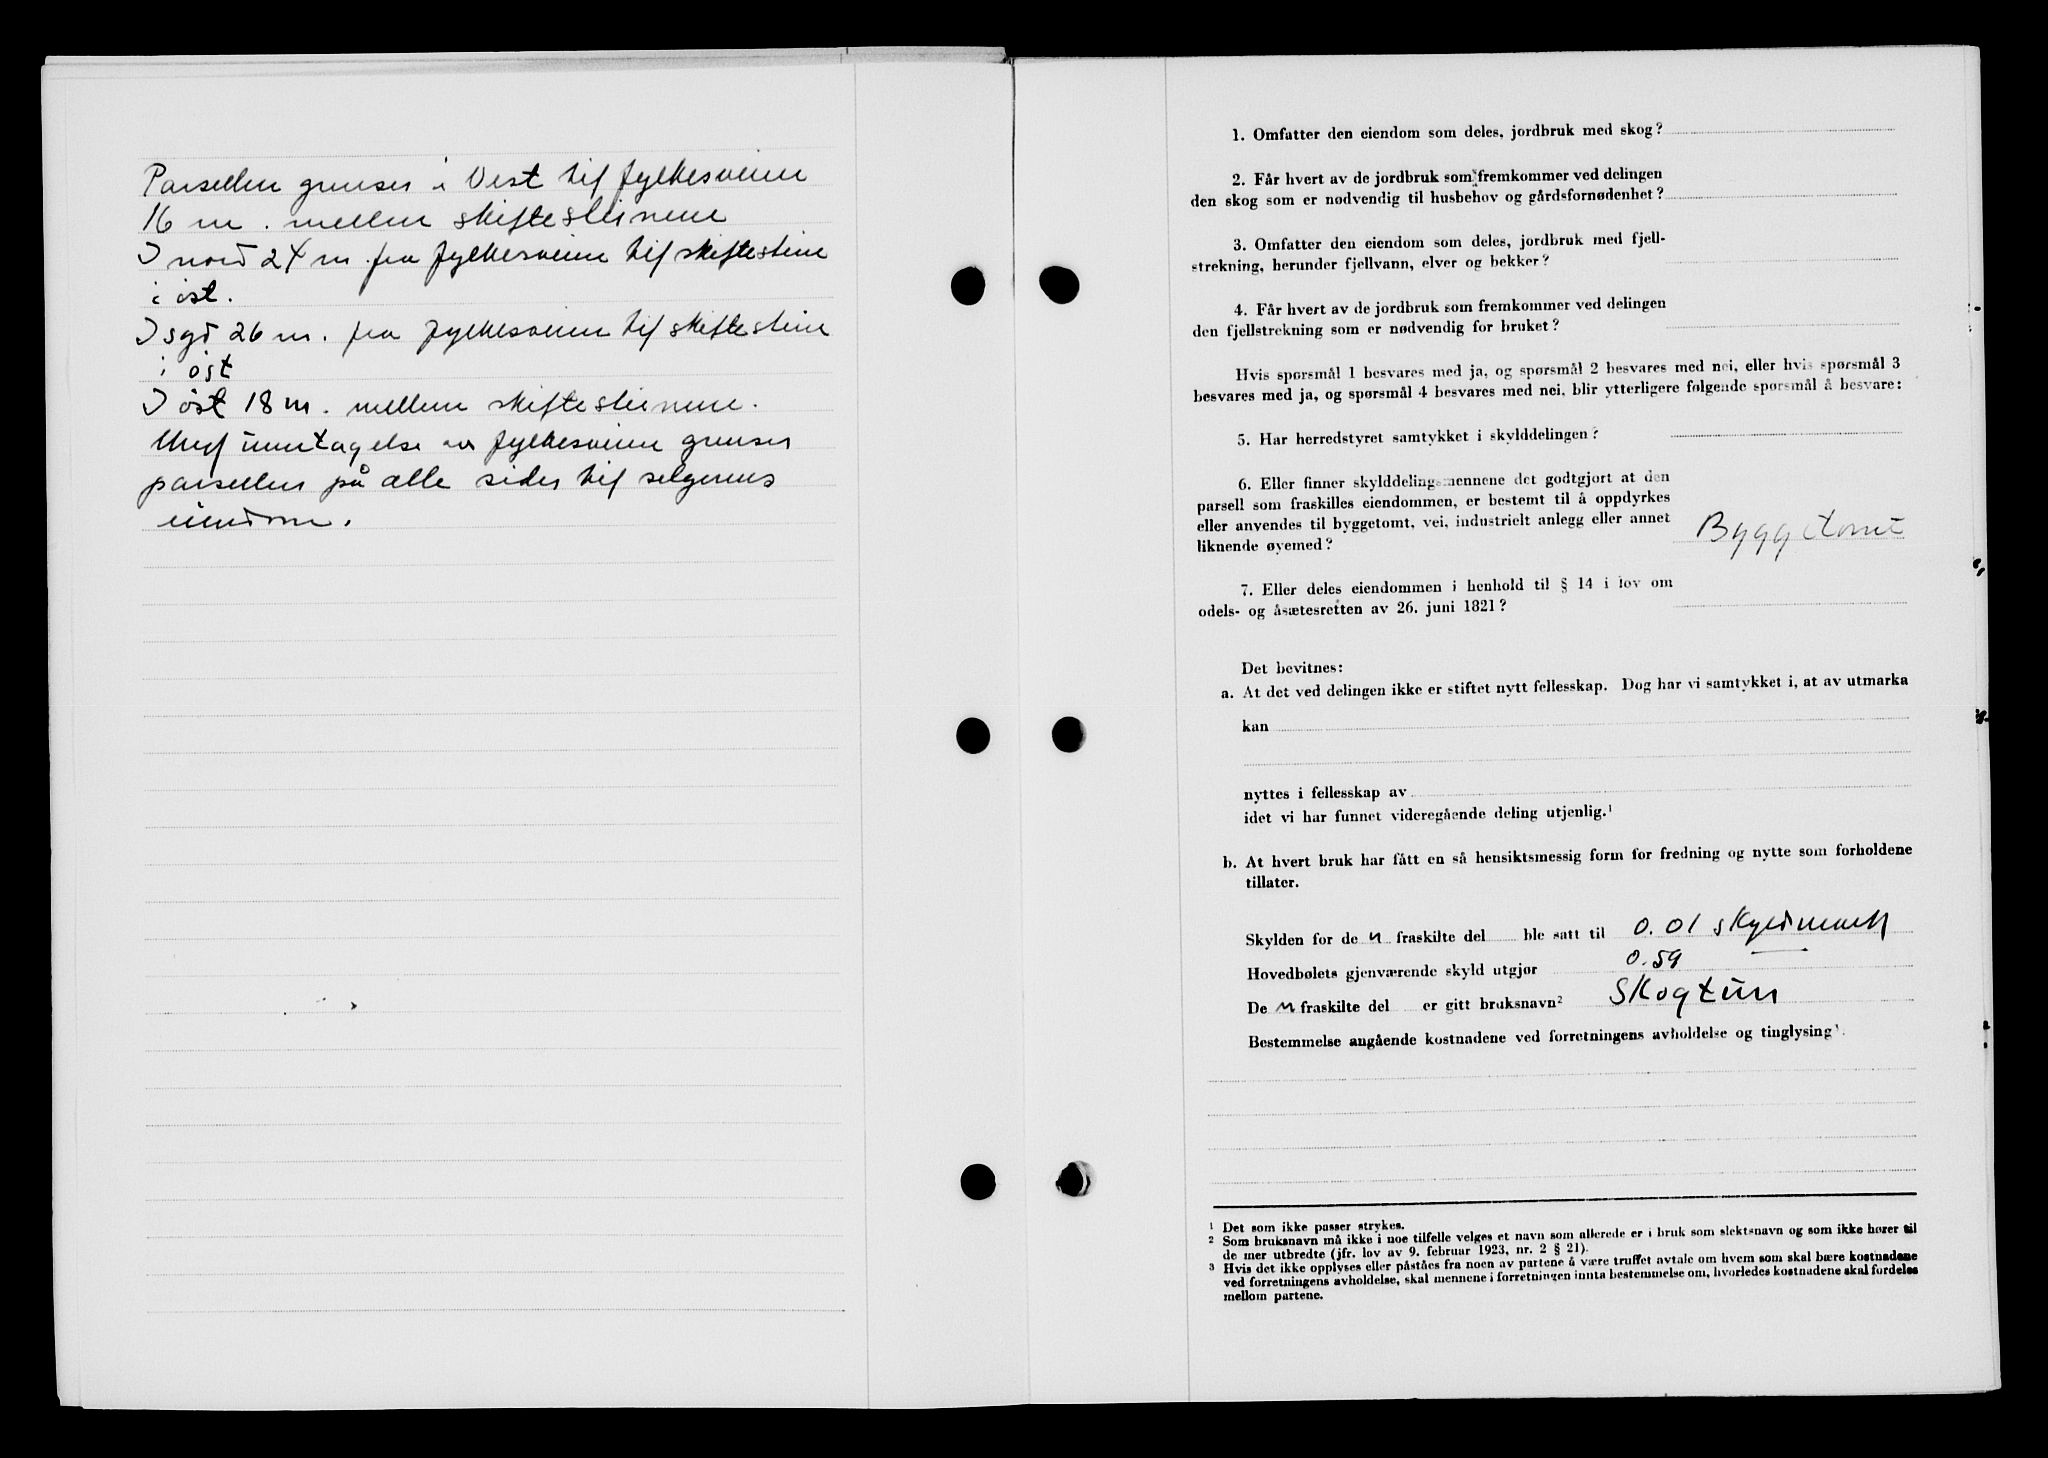 Parsellen grenser i Vest til fylkesveien
16 m. mellem skiftesteinene
I nord 24 m. fra fylkesveien til skiftestein
i øst.
I syd 26 m. fra fylkesveien til skiftestein
i øst
I øst 18 m. mellem skiftesteinene.
Med unntagelse av fylkesveien grenser
parsellen på alle sider til selgerens
eiendom.
1. Omfatter den eiendom som deles, jordbruk med skog?
2. Får hvert av de jordbruk som fremkommer ved delingen
den skog som er nødvendig til husbehov og gårdsfornødenhet?
3. Omfatter den eiendom som deles, jordbruk med fjell-
strekning, herunder fjellvann, elver og bekker?
4. Får hvert av de jordbruk som fremkommer ved delingen
den fjellstrekning som er nødvendig for bruket?
Hvis spørsmål 1 besvares med ja, og spørsmål 2 besvares med nei, eller hvis spørsmål 3
besvares med ja, og spørsmål 4 besvares med nei, blir ytterligere følgende spørsmål å besvare:
5. Har herredstyret samtykket i skylddelingen?
6. Eller finner skylddelingsmennene det godtgjort at den
parsell som fraskilles eiendommen, er bestemt til å oppdyrkes
eller anvendes til byggetomt, vei, industrielt anlegg eller annet
liknende øyemed? Byggetomt
7. Eller deles eiendommen i henhold til § 14 i lov om
odels- og åsætesretten av 26. juni 1821?
Det bevitnes:
a. At det ved delingen ikke er stiftet nytt fellesskap. Dog har vi samtykket i, at av utmarka
kan
nyttes i fellesskap av
idet vi har funnet videregående deling utjenlig.¹
b. At hvert bruk har fått en så hensiktsmessig form for fredning og nytte som forholdene
tillater.
Skylden for de n fraskilte del ble satt til 0.01 skyldmark
Hovedbølets gjenværende skyld utgjør 0.59
De n fraskilte del er gitt bruksnavn² Skogtun
Bestemmelse angående kostnadene ved forretningens avholdelse og tinglysing³.
¹ Det som ikke passer strykes.
² Som bruksnavn må ikke i noe tilfelle velges et navn som allerede er i bruk som slektsnavn og som ikke hører til
de mer utbredte (jfr. lov av 9. februar 1923, nr. 2 § 21).
³ Hvis det ikke opplyses eller påståes fra noen av partene å være truffet avtale om hvem som skal bære kostnadene
ved forretningens avholdelse, skal mennene i forretningen innta bestemmelse om, hvorledes kostnadene skal fordeles
mellom partene.